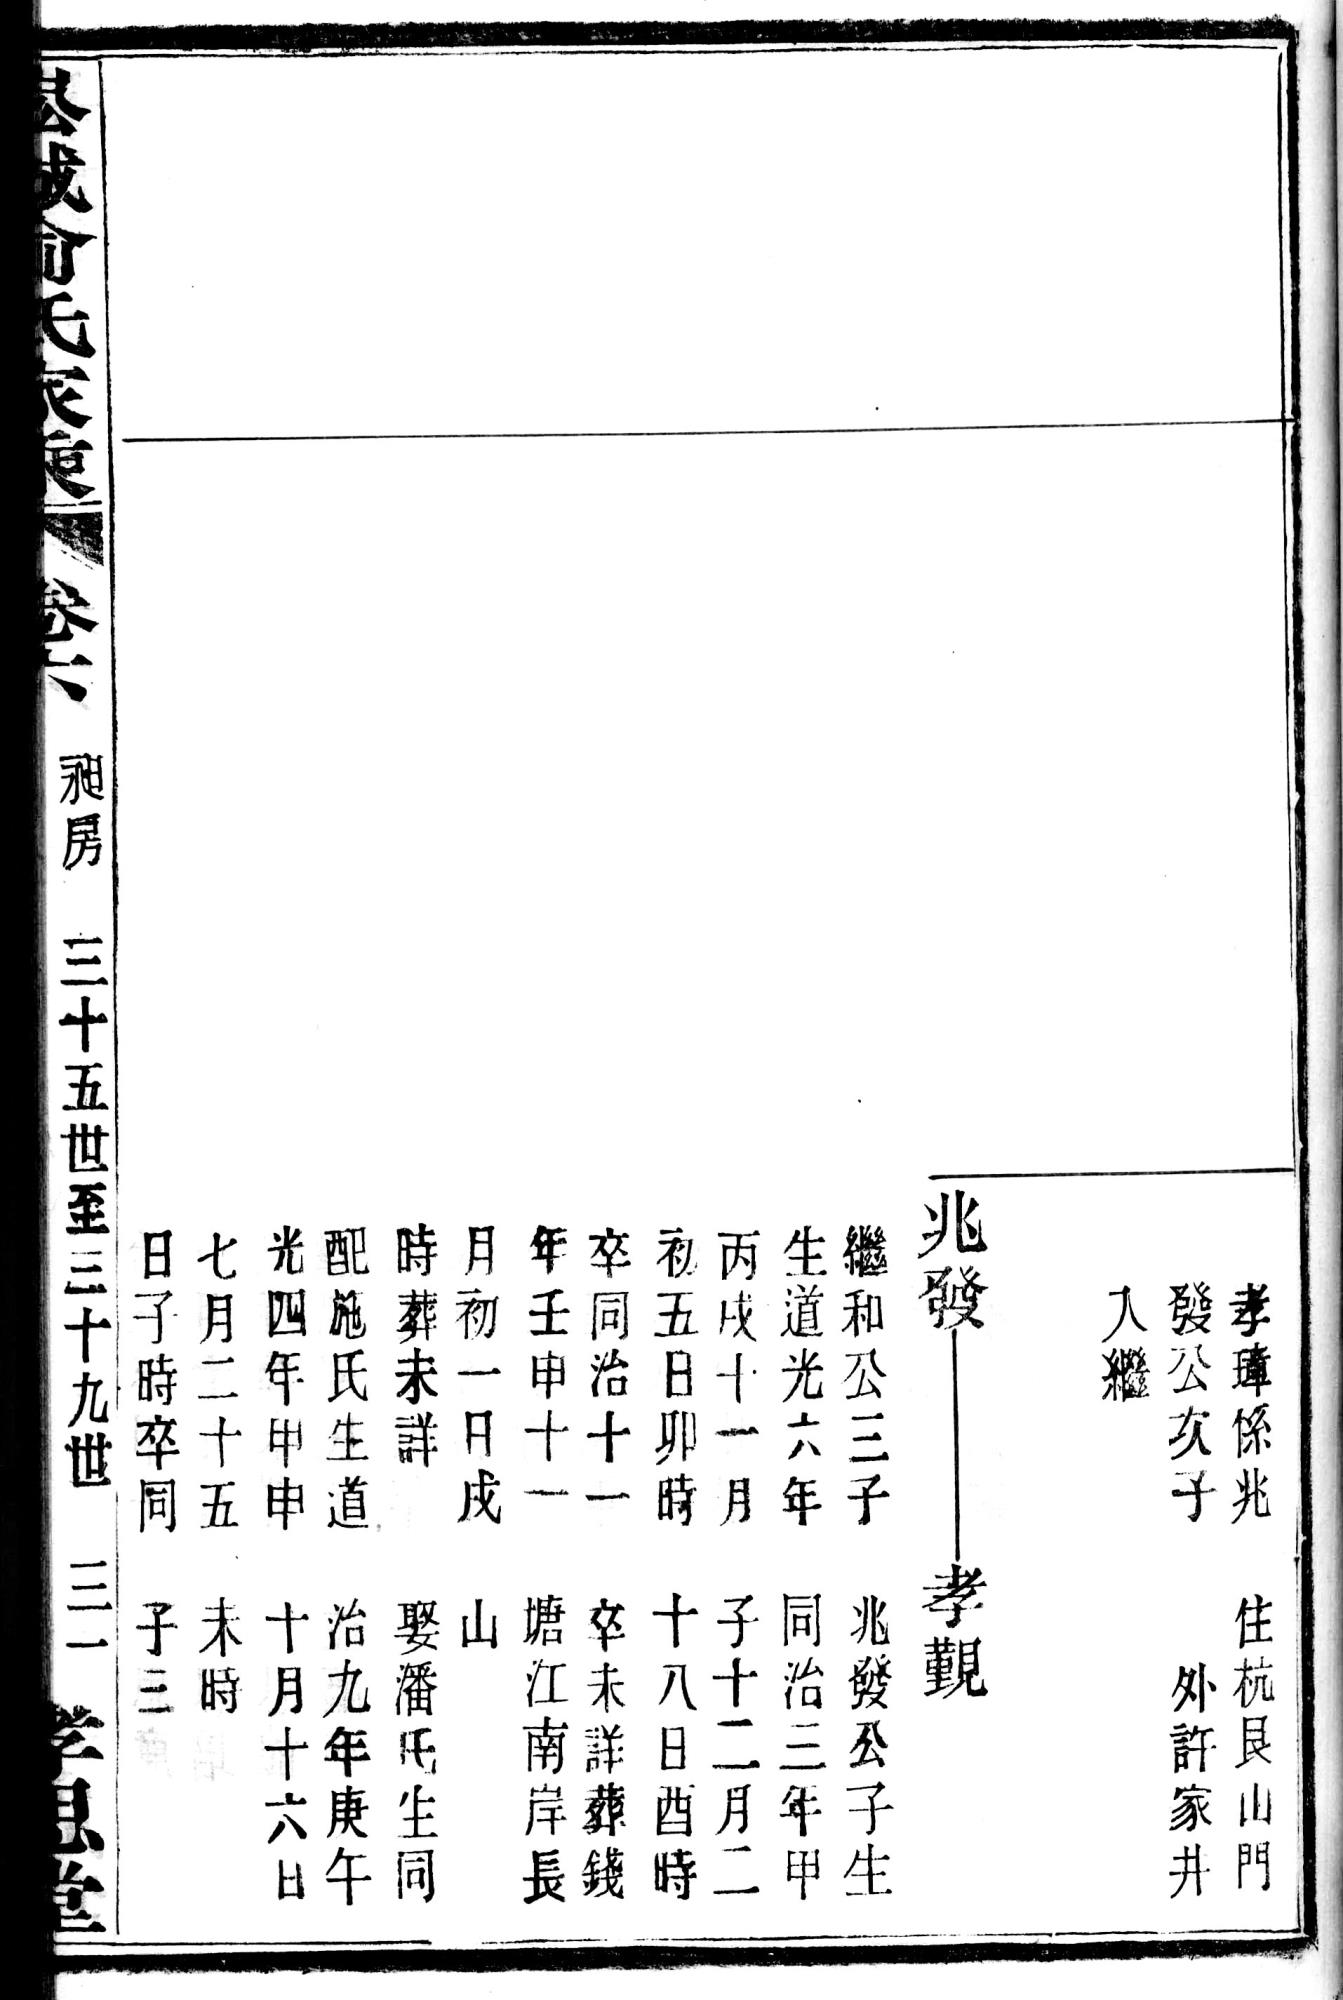 孝瑋係兆
發公次子
入繼
住杭艮山門
外許家井
兆發
繼和公三子
生道光六年
丙戌十一月
初五日卯時
卒同治十一
年壬申十一
月初一日戌
時葬未詳
配施氏生道
光四年甲申
七月二十五
日子時卒同
孝觀
兆發公子生
同治三年甲
子十二月二
十八日酉時
卒未詳葬錢
塘江南岸長
山
娶潘氏生同
治九年庚午
十月十六日
未時
子三
俞氏家
卷六
昶房
三十五世至三十九世
三一
孝思堂